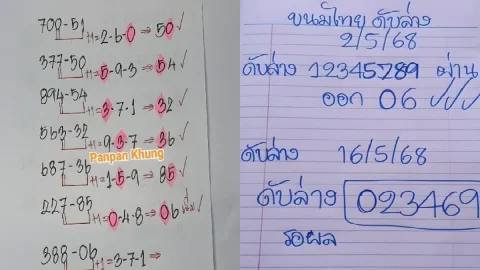 708-51 +1=2-6-0⇒50✓
377-50 +1=5-9-3⇒54✓
894-54 +1=3-7-1⇒32✓
563-32 +1=9-3-7⇒36✓
Panpan Khung
687-36 +1=1-5-9⇒85✓
227-85 +1=0-4-8⇒06 ✓
388-06 +1=3-7-1⇒
ขนมไทย ดับล่าง
2/5/68
ดับล่าง 12345789 ผ่าน
ออก 06 ✓✓✓
ดับล่าง 16/5/68
ดับล่าง 023469
รอผล